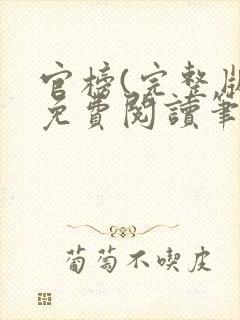 官榜(完整版
免費閱讀筆
葡萄不喫皮